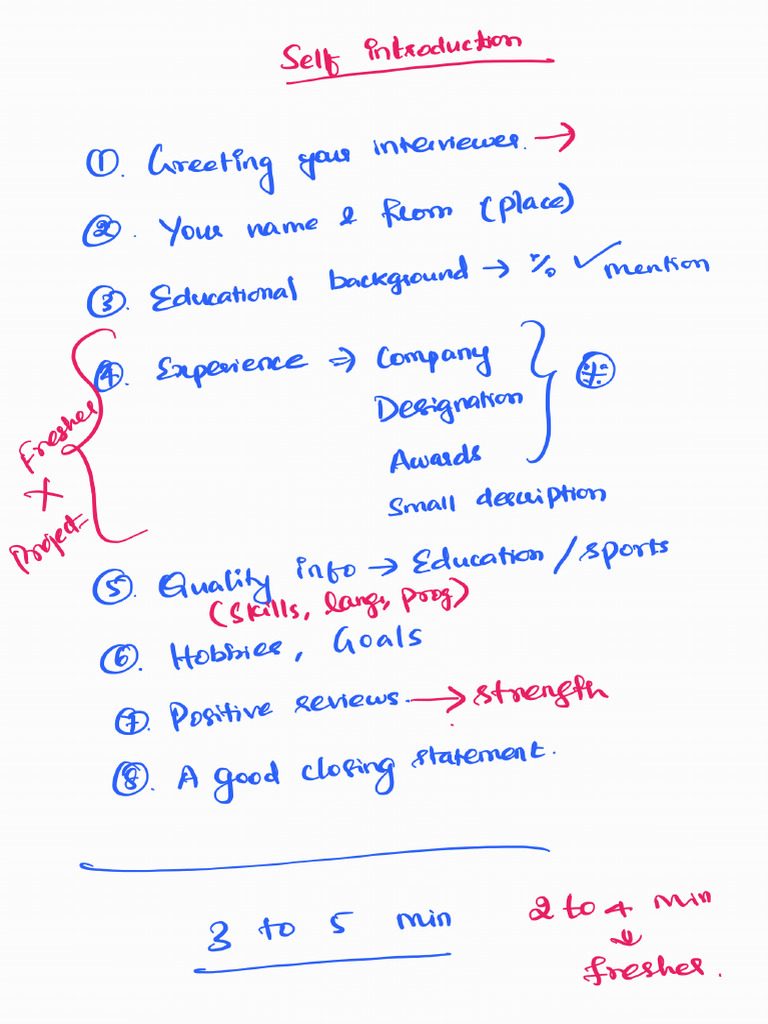 Self introduction
①. Greeting your interviewer. →
②. Your name & from (place)
③. Educational background → % ✓ mention
④. Experience ⇒ Company
Designation
Awards
Small description
Fresher
X
Project
⑤. Quality info → Education / sports
(skills, lang, prog)
⑥. Hobbies, Goals
⑦. Positive reviews. → strength
⑧. A good closing statement.
3 to 5 min
2 to 4 min
↓
fresher.